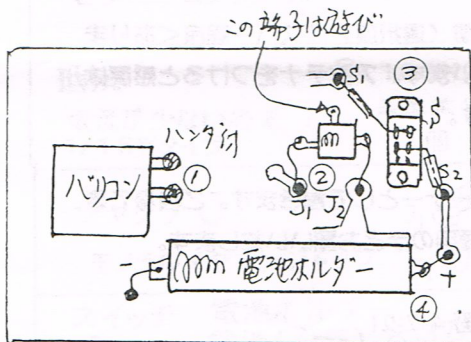 この端子は遊び
S₁
③
S
ハンダ付
m
バリコン
①
②
S₂
J₁ J₂
電池ホルダー
−
+
④